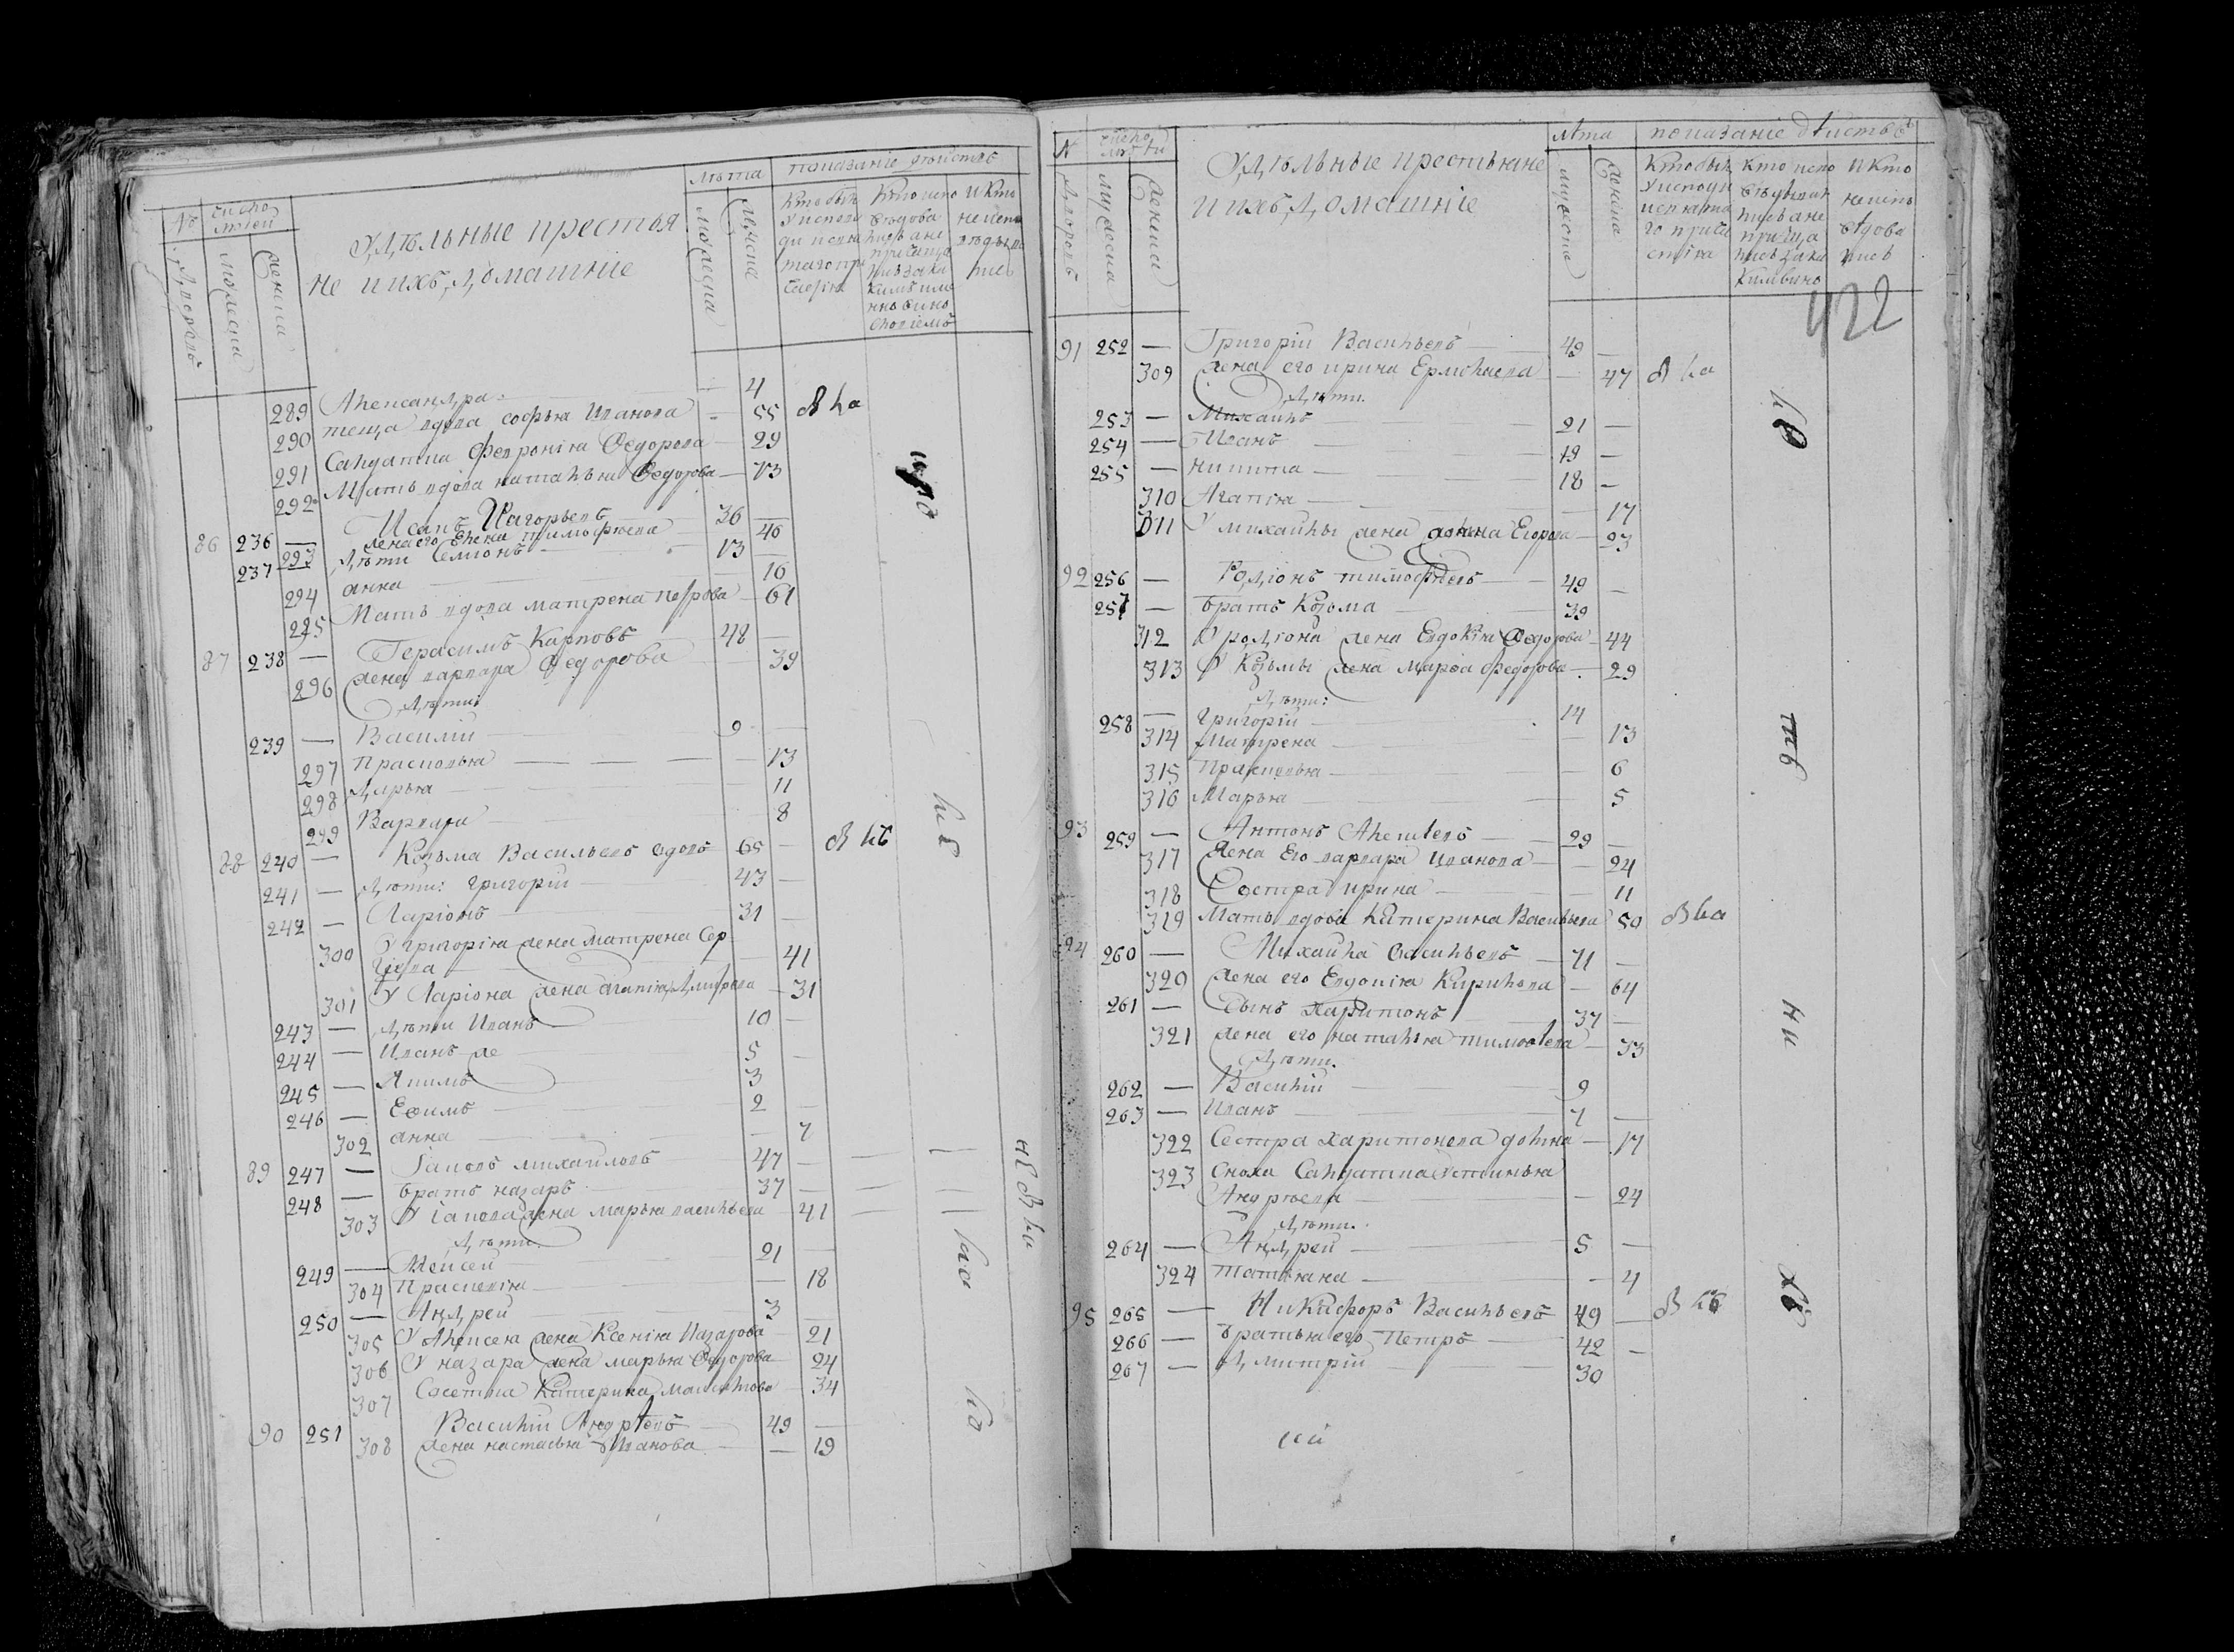 № число людей
дворовъ
мужеска
женска
Удѣльные крестья
не и ихъ домашніе
лѣта
мужеска
женска
показаніе дѣйствъ
Кто былъ
у исповѣ
ди и свя
таго при
частія
Кто испо
вѣдова
лись а не
прича
и кто
не испо
вѣдыва
лись
289 Александра 4
290 теща вдова Софья Иванова 55
291 Салдатка Феврониа Ѳедорова 29
292 Мать вдова наталья Ѳедорова 73
86 236 — Исакъ Игорьевъ 36 —
293 жена его Елена тимофѣева 40
237 — дѣти Семионъ 13 —
294 анна 16
295 Мать вдова матрена петрова 61
87 238 — Герасимъ Карповъ 48 —
296 жена варвара Ѳедорова 39
дѣти
239 — Василий 9 —
297 Прасковья — 13
298 Дарья 11
299 Варвара 8
88 240 — Козьма Васильевъ вдовъ 65 —
241 — дѣти: григорій 43 —
242 — Ларіонъ 31 —
300 У григорія жена матрена Сер
гіева 41
301 У Ларіона жена агапія Дмитрева — 31
243 — дѣти Иванъ 10 —
244 — Иванъ же 5 —
245 — Якимъ 3
246 — Ефимъ 2 —
302 анна — 7
89 247 — Іаковъ михайловъ 47 —
248 — братъ назаръ 37 —
303 У Іакова жена марья васильева — 41
дѣти
249 — Алексей 21 —
304 Прасковія — 18
250 — Андрей 3 —
305 У Алексея жена Ксенія Назарова 21
306 У назара жена марья Ѳедорова 24
307 Катерина 34
90 251 Василій Андрѣевъ 49 —
308 жена настасья Иванова — 19
N число людей
дворовъ
мужеска
женска
Удѣльные крестьяне
и ихъ домашніе
лѣта
мужеска
женска
показаніе дѣйствъ
Кто былъ
у исповѣди
и святаго
прича
стія
Кто испо
вѣдывал
лись а не
прича
И кто
не испо
вѣдова
лись
422
91 252 — Григорій Васильевъ 49 —
309 жена его ирина Ермолаева — 47
дѣти.
253 — Михаилъ 21 —
254 — Иванъ 19 —
255 — никита 18 —
310 Агапія — 17
311 У михайлы жена Егорова — 23
92 256 — Родіонъ тимофѣевъ 49 —
257 — братъ Козома 39
312 У родіона жена Евдокія Ѳедорова — 44
313 У Козьмы жена Марья Федорова — 29
дѣти:
258 — григорій 14
314 Матрена — 13
315 Прасковья — 6
316 Марья — 5
93 259 — Антонъ Алексѣевъ 29 —
317 жена Его варвара Иванова — 24
318 Сестра ирина — 11
319 Мать вдова Катерина Васильева 50
94 260 — Михайла Васильевъ 71 —
320 жена его Евдокия Кирилова — 64
261 — Сынъ Харитонъ 37 —
321 жена его наталья тимоѳѣева — 33
дѣти.
262 — Василій 9
263 — Иванъ 7 —
322 Сестра харитонева — 17
323 Сноха Салдатка Устинья
Андрѣева — 24
дѣти.
264 — Андрей 5 —
324 татьяна — 4
95 265 — Никифоръ Васильевъ 49 —
266 — братья его Петръ 42 —
267 — Дмитрій 30